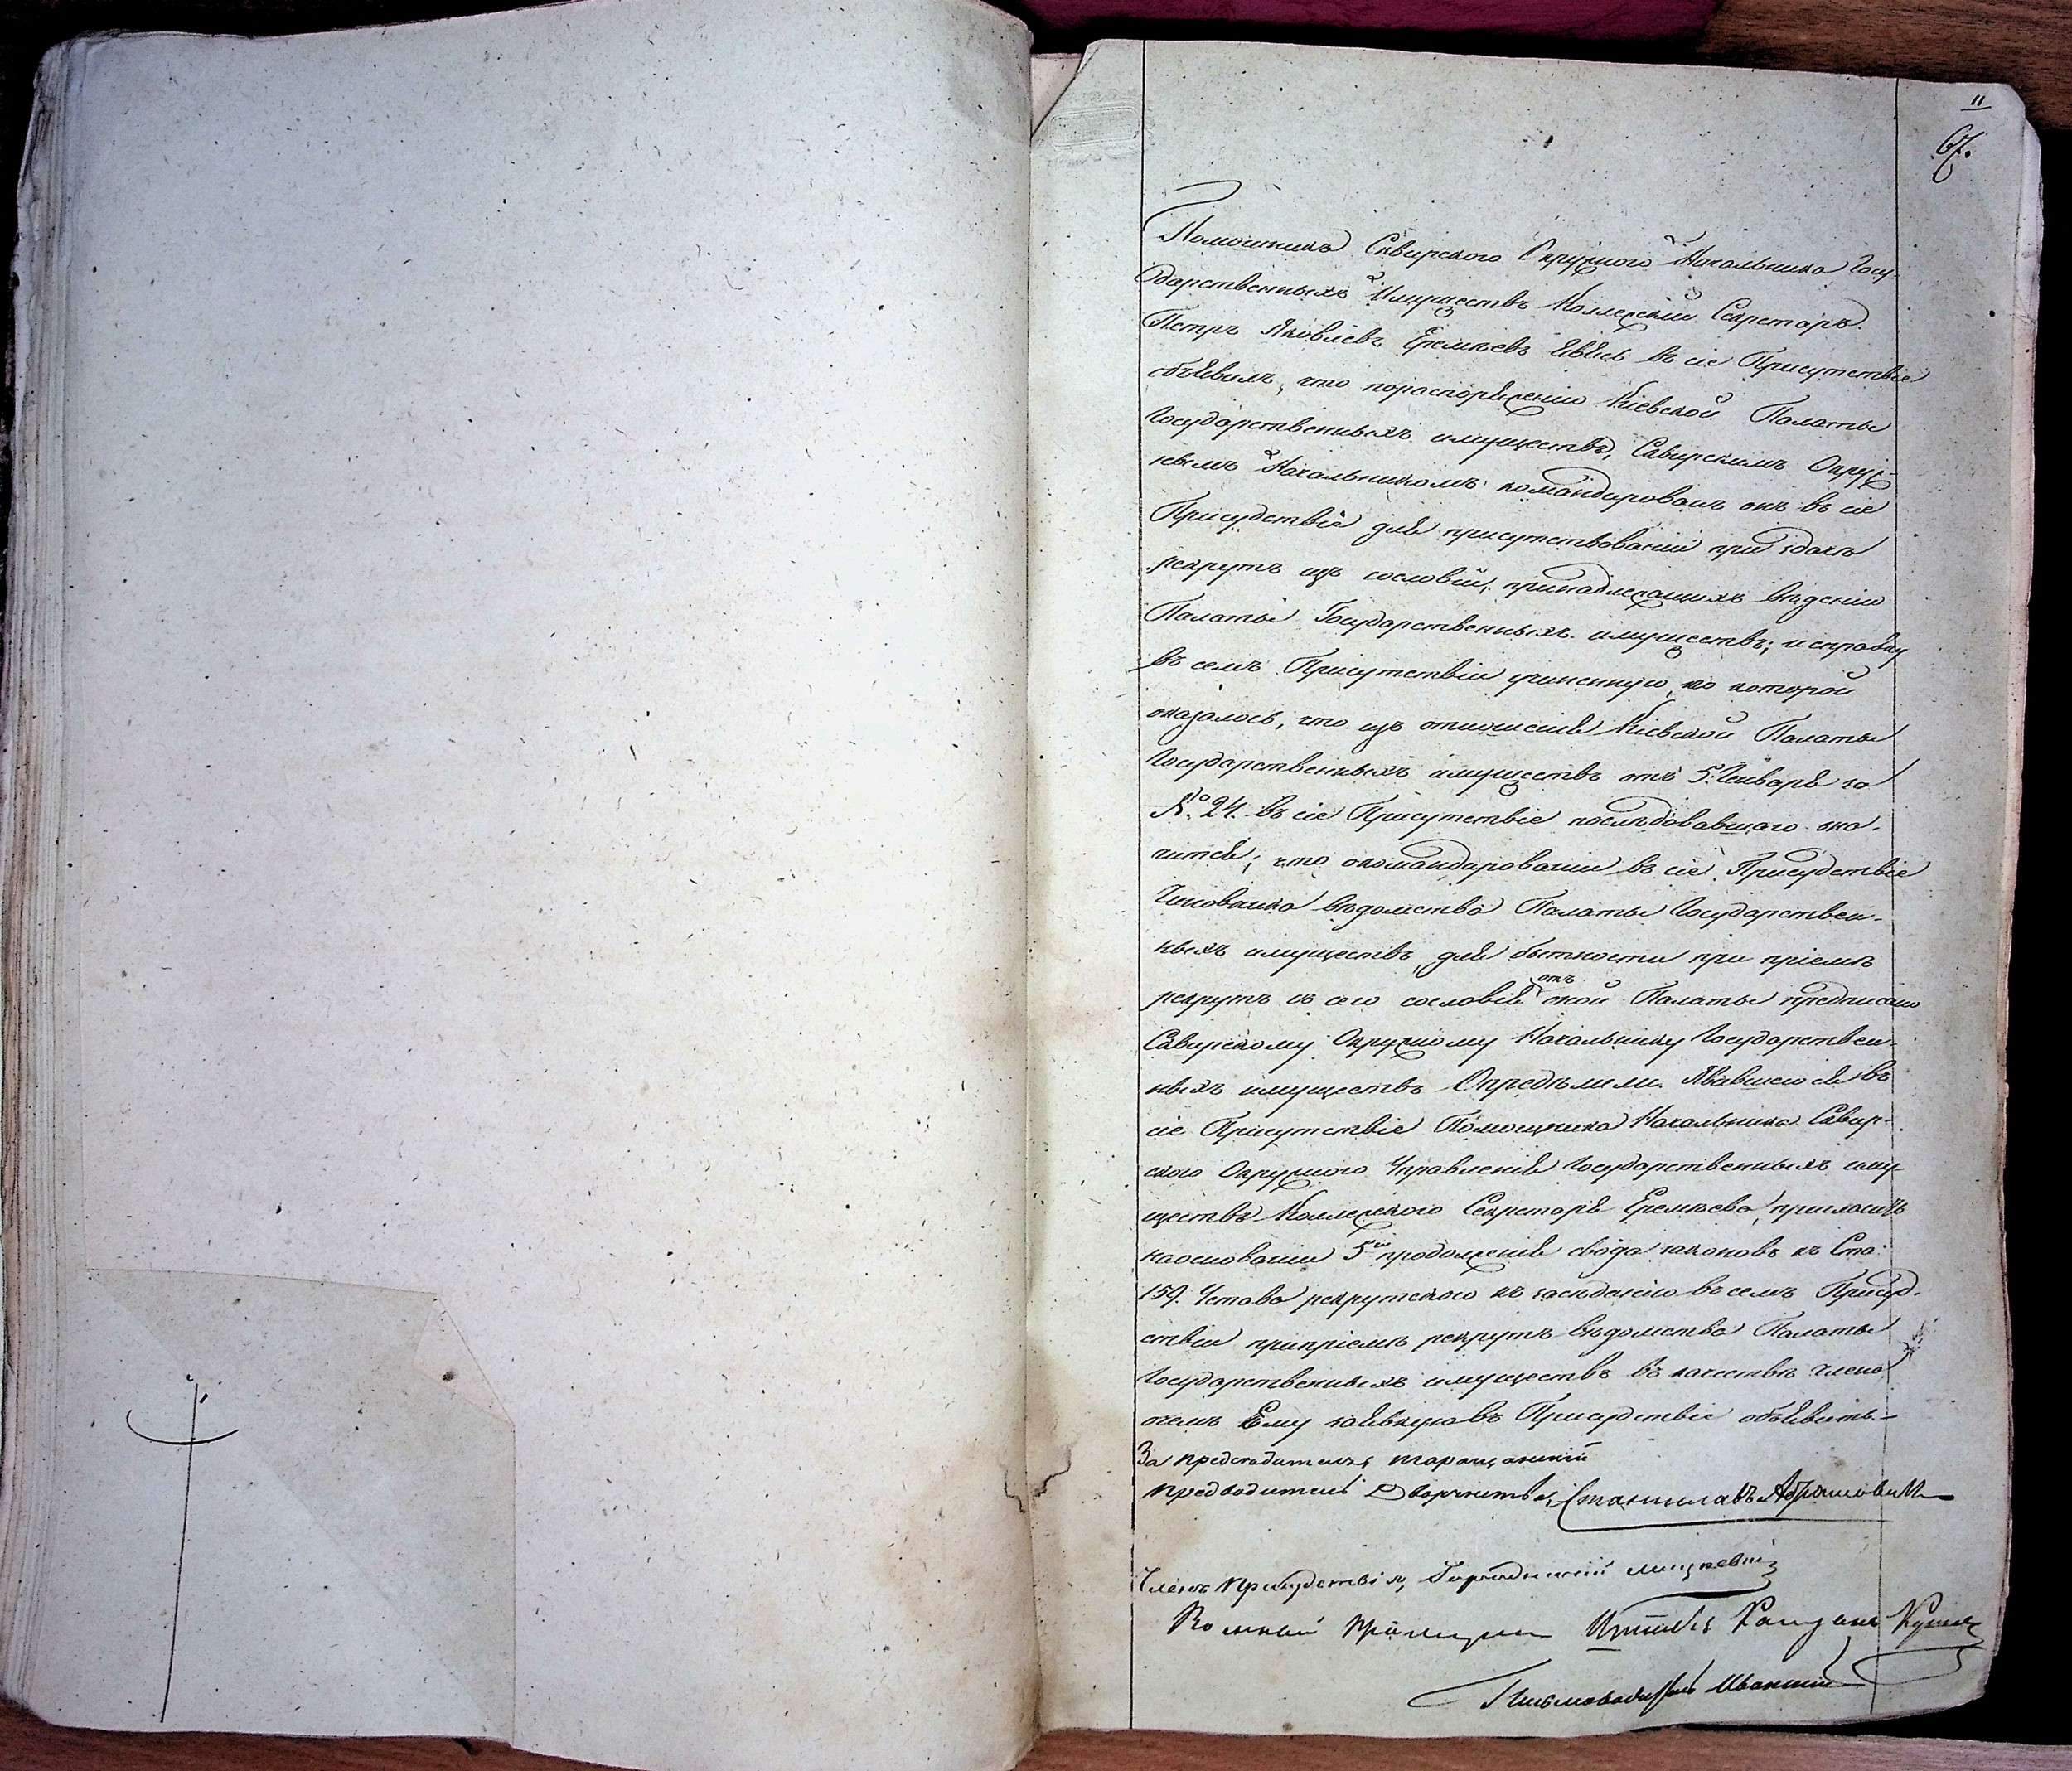 11
67.
Помошникъ Сквирского Окружного Начальника Госу-
дарственныхъ Имуществъ Коллежскій Секретарь
Петръ Яковлевъ Еремѣевъ явясь въ сіе Присутствіе
объявилъ, что пораспоряженію Кіевской Палаты
Государственныхъ имуществъ, Сквирскимъ Окруж-
нымъ Начальникомъ командированъ онъ въ сіе
Присудствіе для присутствованія при здачѣ
рекрутъ изъ сословій, принадлежащихъ вѣденію
Палаты Государственныхъ имуществъ; и справку
въ семъ Присутствіи учиненную, по которой
оказалось, что изъ отношенія Кіевской Палаты
Государственныхъ имуществъ отъ 5. Генваря за
№ 24. въ сіе Присутствіе послѣдовавшаго зна-
чится; что окомандированіи въ сіе Присудствіе
Чиновника вѣдомства Палаты Государствен-
ныхъ имуществъ, для бытности при пріемѣ
рекрутъ съ сего сословія отъ оной Палаты предписано
Сквирскому Окружному Начальнику Государствен-
ныхъ имуществъ Опредѣлили. Явившегося въ
сіе Присутствіе Помощника Начальника Сквир-
ского Окружного Управленія Государственныхъ иму-
ществъ Коллежского Секретаря Еремѣева, пригласить
наоснованіи 5го продолженія свода законовъ къ Ста:
159. Устава рекрутского къ засѣданію въ семъ Присуд-
ствіи припріемѣ рекрутъ вѣдомства Палаты
Государственныхъ имуществъ въ качествѣ члена
очемъ Ему въ Присудствіе объявить.-
За предсѣдателя таращанскій
предводитель Дворянства, Станиславъ Абрамовичъ
Членъ Присудствія, Городничій
Военный Пріемщикъ Капитанъ
Письмоводитель Иваницкій